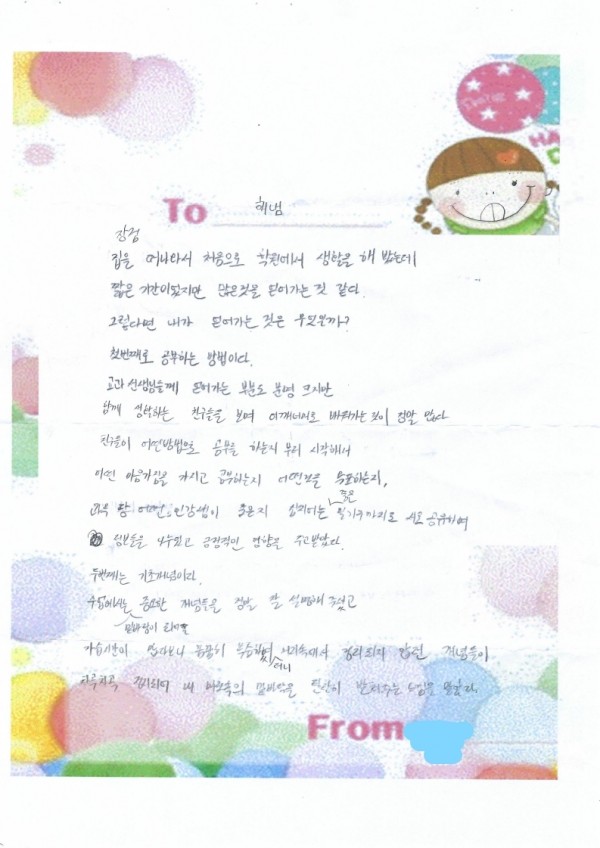 To 혜냄
장점
집을 떠나와서 처음으로 학원에서 생활을 해 봤는데
짧은 기간이었지만 많은것을 얻어가는 것 같다.
그렇다면 내가 얻어가는 것은 무엇일까?
첫번째로 공부하는 방법이다.
교과 선생님들께 얻어가는 부분도 분명 크지만
함께 생활하는 친구들을 보며 어깨너머로 배워가는것이 정말 많다
친구들이 어떤방법으로 공부를 하는지부터 시작해서
어떤 마음가짐을 가지고 공부하는지 어떤것을 목표하는지,
과목 당 어떤 인강쌤이 좋은지 심지어는 좋은 필기구까지도 서로 공유하며
정보들을 나누었고 긍정적인 영향을 주고받았다.
두번째는 기초개념이다.
수업에서는 중요한 개념들을 정말 잘 설명해 주셨고
자습시간이 많다보니 꼼꼼히 복습하였더니 머리속에서 정리되지 않던 개념들이
차곡차곡 정리되어 내 머릿속의 밑바탕을 탄탄히 받쳐주는 느낌을 받았다.
From